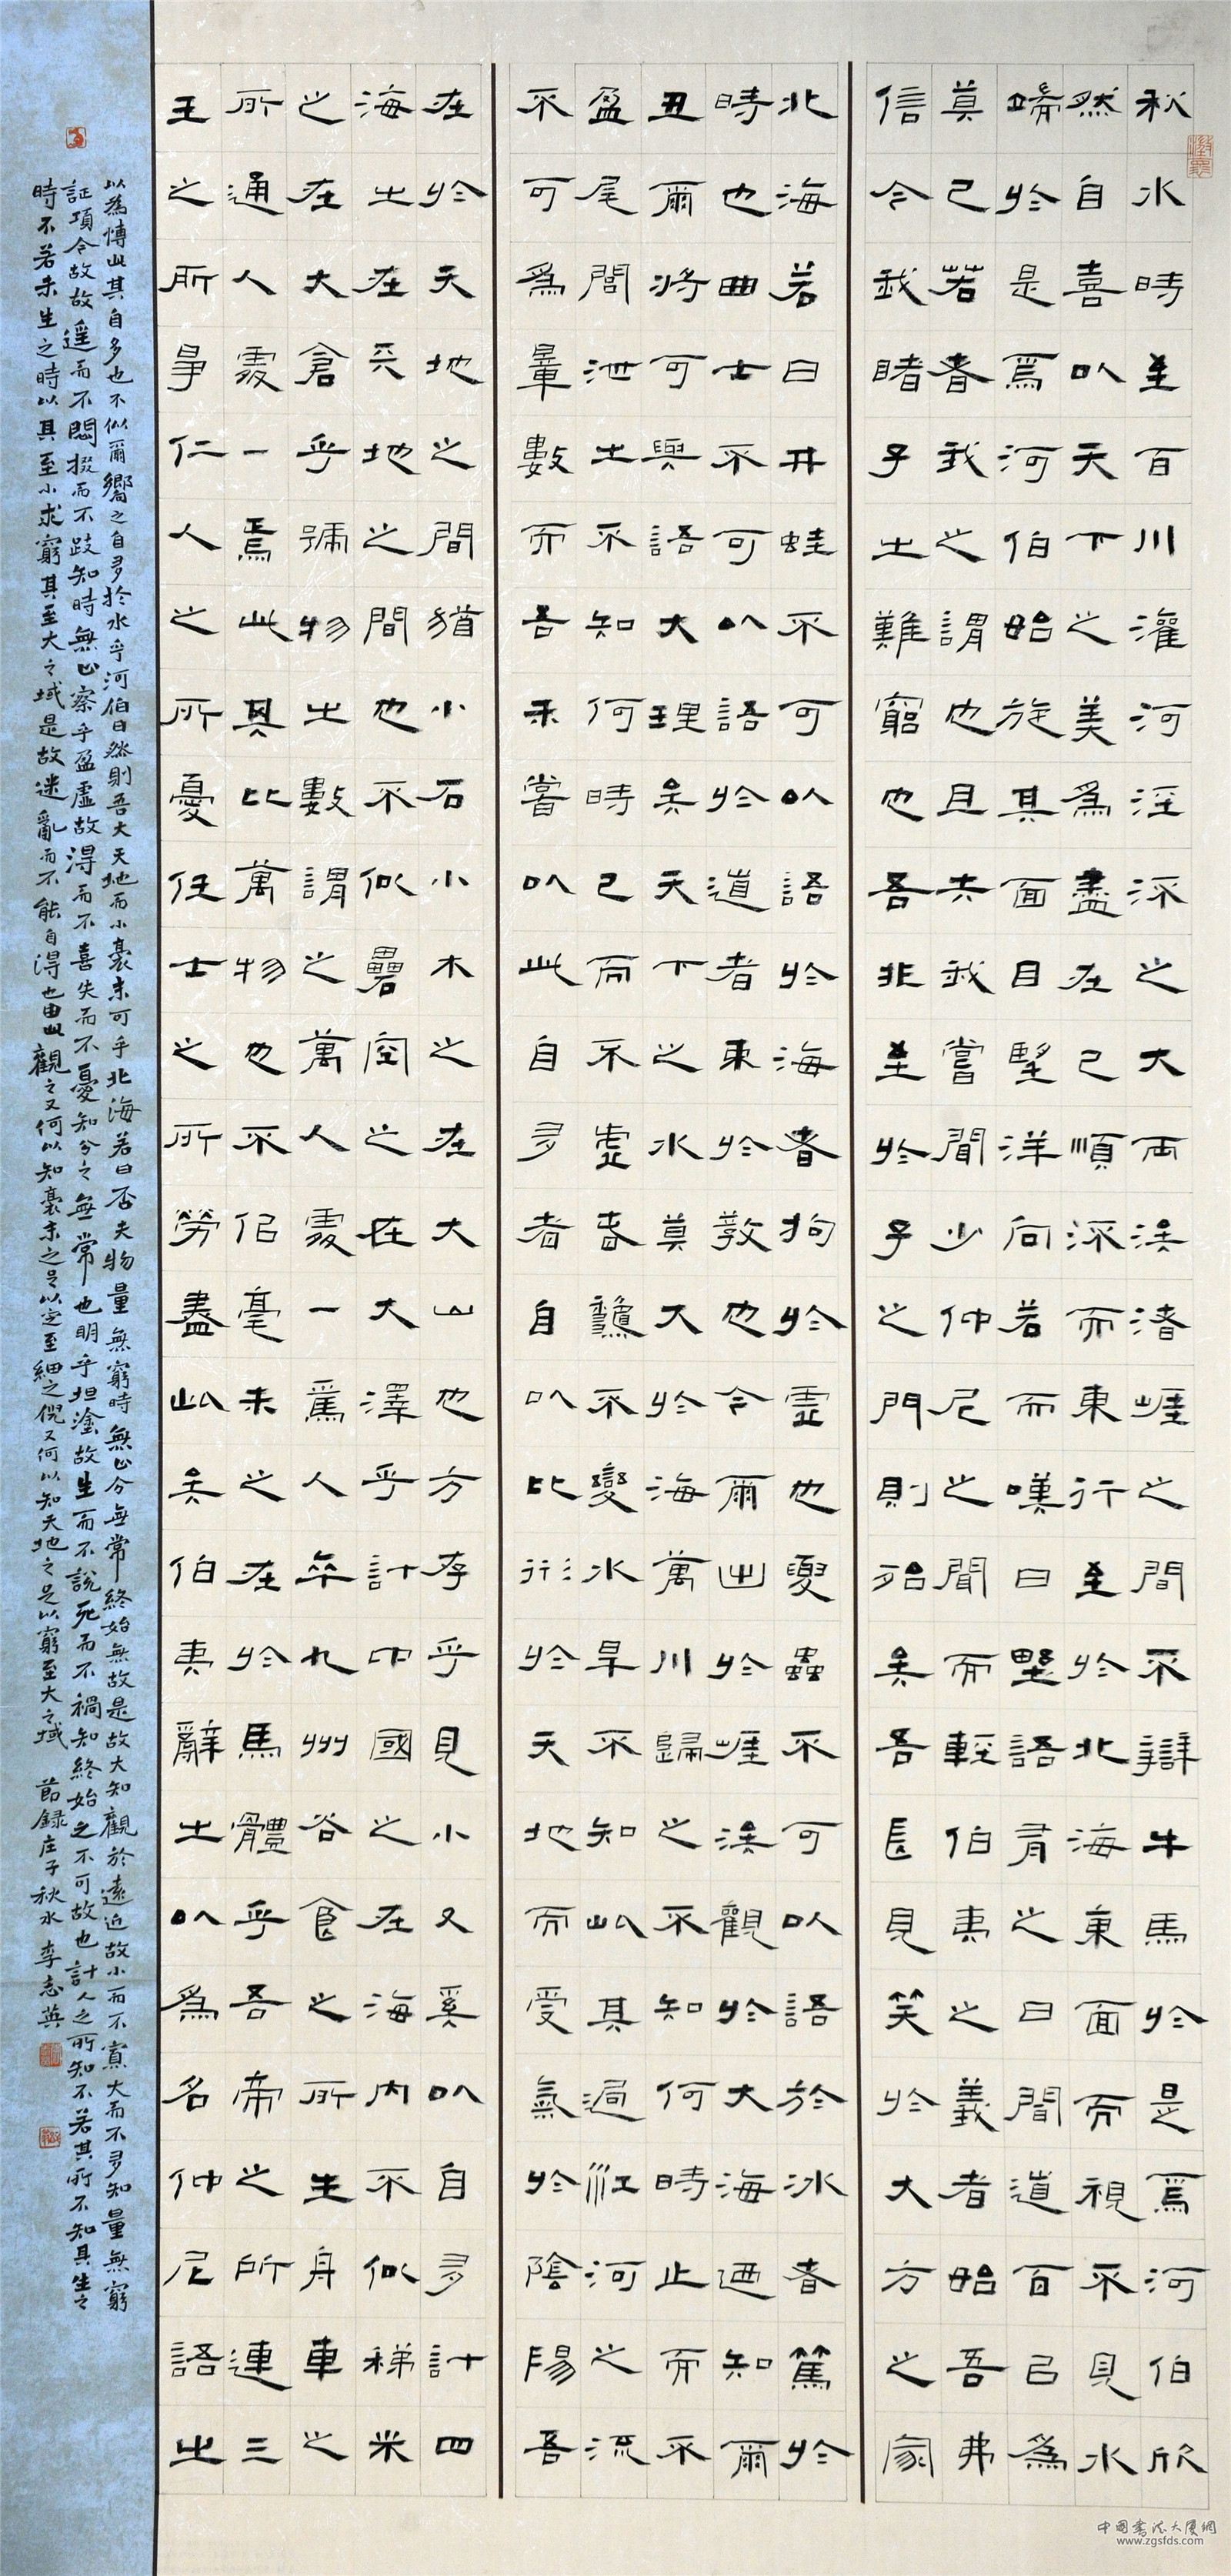 秋水時至百川灌河涇流之大兩涘渚崖之間不辯牛馬於是焉河伯欣
然自喜以天下之美為盡在己順流而東行至於北海東面而視不見水
端於是焉河伯始旋其面目望洋向若而嘆曰野語有之曰聞道百以為
莫己若者我之謂也且夫我嘗聞少仲尼之聞而輕伯夷之義者始吾弗
信今我睹子之難窮也吾非至於子之門則殆矣吾長見笑於大方之家
北海若曰井蛙不可以語於海者拘於虛也夏蟲不可以語於冰者篤於
時也曲士不可以語於道者束於教也今爾出於崖涘觀於大海迺知爾
丑爾將可與語大理矣天下之水莫大於海萬川歸之不知何時止而不
盈尾閭泄之不知何時已而不虛春秋不變水旱不知此其過江河之流
不可為量數而吾未嘗以此自多者自以比形於天地而受氣於陰陽吾
在於天地之間猶小石小木之在大山也方存乎見小又奚以自多計四
海之在天地之間也不似礨空之在大澤乎計中國之在海內不似稊米
之在大倉乎號物之數謂之萬人處一焉人卒九州谷食之所生舟車之
所通人處一焉此其比萬物也不似毫末之在於馬體乎吾帝之所連三
王之所爭仁人之所憂任士之所勞盡此矣伯夷辭之以為名仲尼語之
以為博此其自多也不似爾嚮之自多於水乎河伯曰然則吾大天地而小毫末可乎北海若曰否夫物量無窮時無止分無常終始無故是故大知觀於遠近故小而不寡大而不多知量無窮
証項今故故遙而不悶掇而不跂知時無止察乎盈虛故得而不喜失而不憂知分之無常也明乎坦塗故生而不說死而不禍知終始之不可故也計人之所知不若其所不知其生之
時不若未生之時以其至小求窮其至大之域是故迷亂而不能自得也由此觀之又何以知毫末之足以定至細之倪又何以知天地之足以窮至大之域 節錄庄子秋水 李志英
中国书法大厦網
www.zgsfds.com